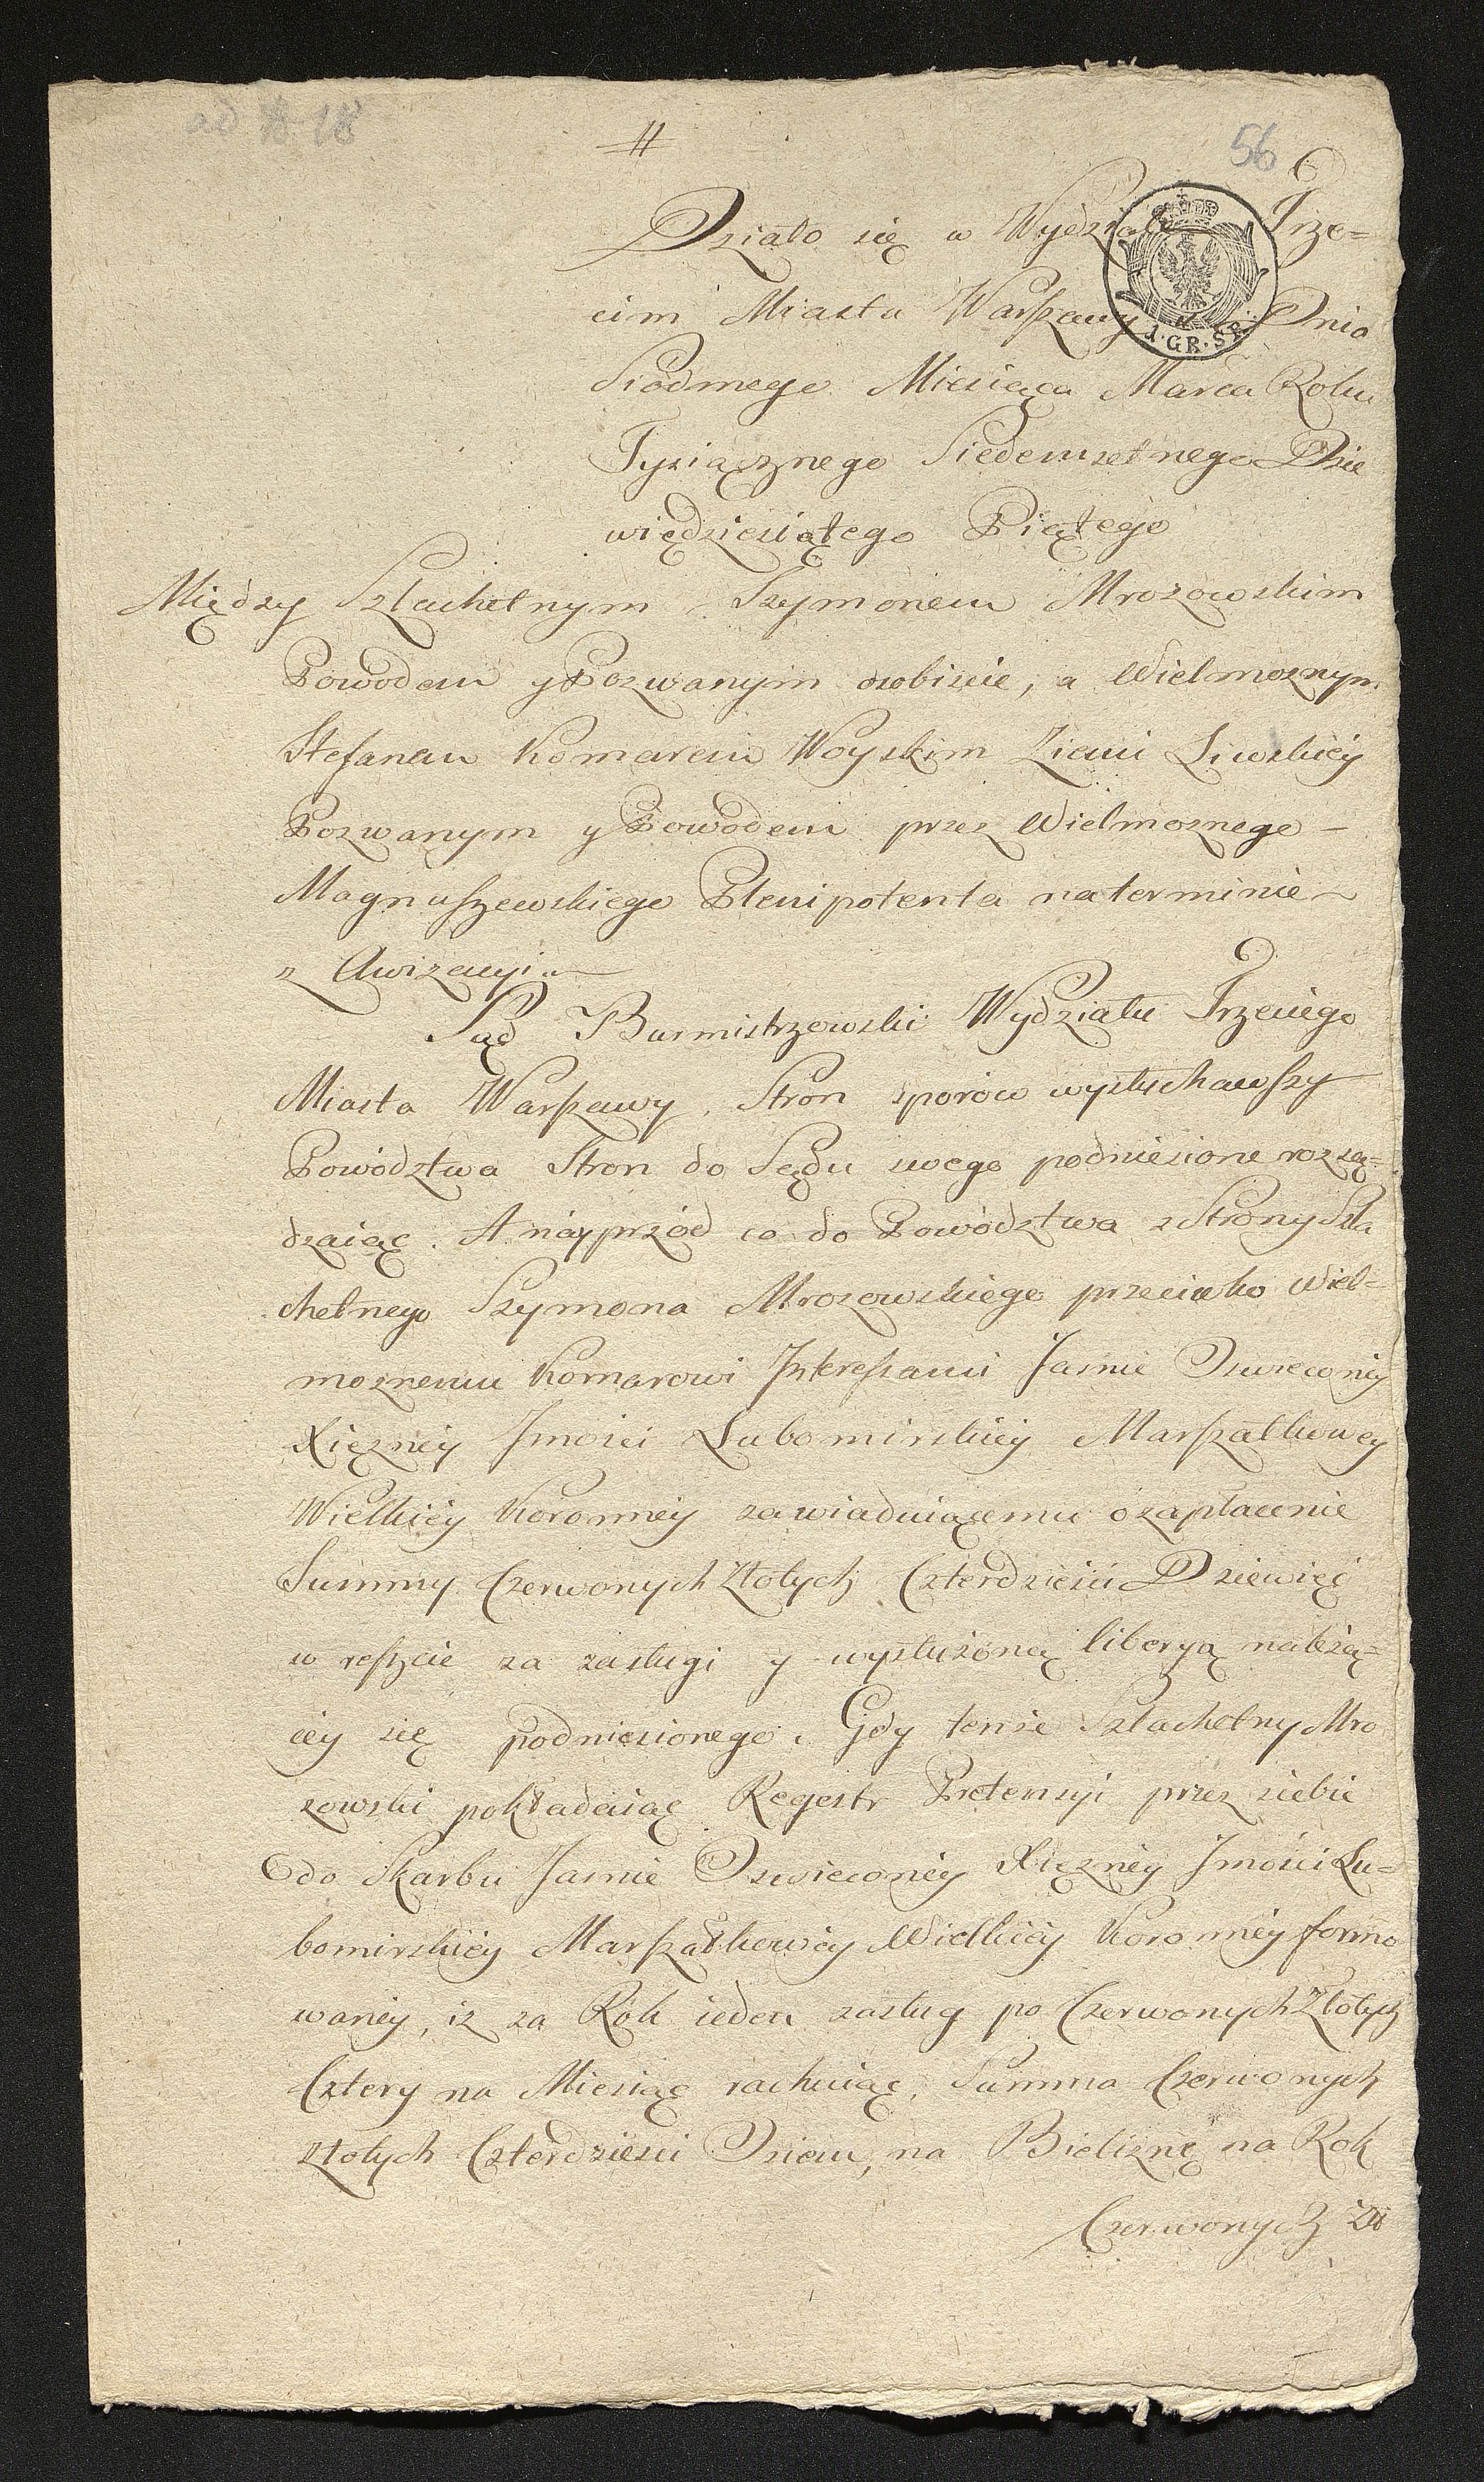 ad 18
56
#
Działo się w Wydziale Trze=
cim Miasta Warszawy Dnia
1. GR. SR.
Siódmego Miesiąca Marca Roku
Tysiącznego Siedemsetnego Dzie
więdziesiątego Piątego
Między Szlachetnym Szymonem Mrozowskim
Powodem y Pozwanym osobiście, a Wielmoznym
Stefanem Komarem Woyskim Ziemi Liwskiey
Pozwanym y Powodem przez Wielmoznego –
Magnuszewskiego Plenipotenta na terminie ~
z Awizacyi
Sąd Burmistrzowski Wydziału Trzeciego
Miasta Warszawy, Stron sporów wysłuchawszy
Powództwa Stron do Sądu swego podniesione rozsą=
dzaiąc. A nayprzód co do Powództwa z Strony Szla
chetnego Szymona Mrozowskiego przeciwko Wiel=
moznemu Komarowi Interessami Jaśnie Oswieconey
Xięzney Jmości Lubomirskiey Marszałkowey
Wielkiey Koronney zawiaduiącemu o zapłacenie
Summy Czerwonych Złotych Czterdzieści Dziewięć
w reszcie za zasługi y wysłużoną liberyą należą=
cey się podniesionego. Gdy tenże Szlachetny Mro
zowski pokładaiąc Regestr Pretensyi przez siebie
do Skarbu Jaśnie Oswieconey Xięzney Jmości Lu=
bomirskiey Marszałkowey Wielkiey Koronney formo
waney, iż za Rok ieden zasług po Czerwonych Złotych
Cztery na Miesiąc rachuiąc, Summa Czerwonych
Złotych Czterdzieści Osiem, na Bieliznę na Rok
Czerwonych Zł